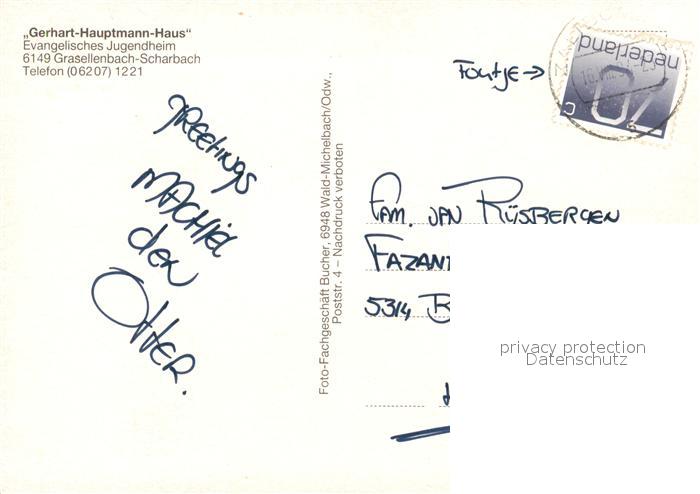 „Gerhart-Hauptmann-Haus“
Evangelisches Jugendheim
6149 Grasellenbach-Scharbach
Telefon (06207) 1221
GREETINGS
MACHIEL
den
OTTER.
Foto-Fachgeschäft Bucher, 6948 Wald-Michelbach/Odw.,
Poststr. 4 – Nachdruck verboten
Foutje →
nederland
70
c
FAM. VAN RÜSBERGEN
FAZANT
5314 B
privacy protection
Datenschutz